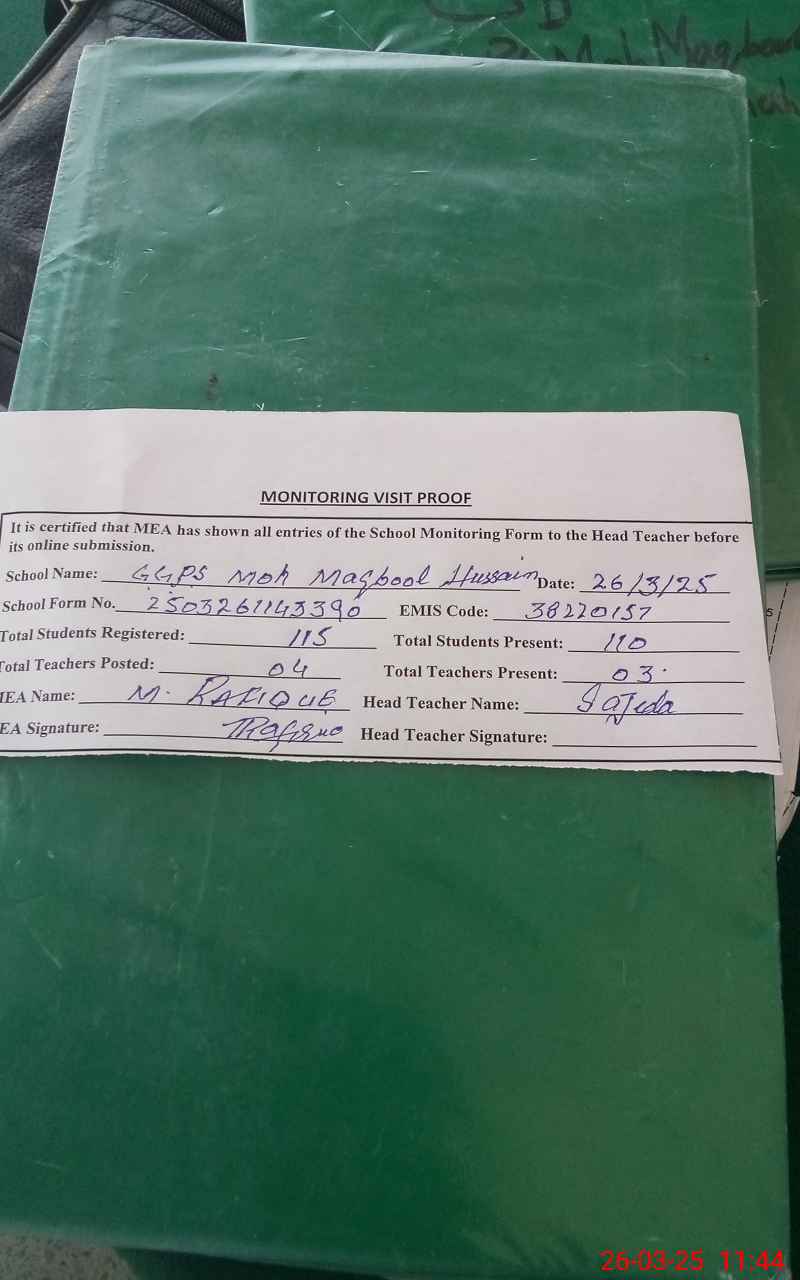 Moh Maqboo
MONITORING VISIT PROOF
It is certified that MEA has shown all entries of the School Monitoring Form to the Head Teacher before
its online submission.
School Name: GGPS Moh Maqbool Hussain Date: 26/3/25
School Form No. 2503261143390 EMIS Code: 38220157
Total Students Registered: 115 Total Students Present: 110
Total Teachers Posted: 04 Total Teachers Present: 03.
MEA Name: M. RAFIQUE Head Teacher Name: Sajeda
EA Signature: Rafique Head Teacher Signature:
26-03-25 11:44